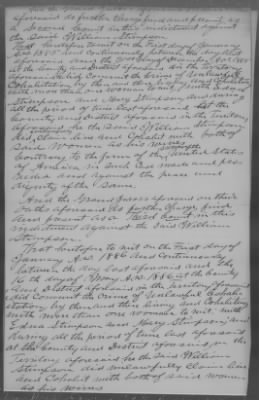 And the Grand Jurors
aforesaid do further charge find and present, as
the second count in this indictment against
the said William Stimpson.
That heretofore towit on the first day of January
A.D. 1885 and continuously between the day last
aforesaid and the
at the County and District aforesaid in the Territory
aforesaid did Commit the crime of Unlawful
Cohabitation, by then and there living and Cohabiting
with more than one woman to wit with Edna
Stimpson and Mary Stimpson, and during
all the period of time last aforesaid at the
County and District aforesaid in the Territory
aforesaid he the said William Stimpson
did Claim live and Cohabit with both of
said women as his wives
Contrary to the form of the United States
of America in such case made and pro-
vided and against the peace and
dignity of the same.
And the Grand Jurors aforesaid on their
oaths aforesaid do further Charge find
and present as a Third Count in this
indictment against the said William
Stimpson.
That heretofore to wit on the First day of
January A.D. 1886 and Continuously
between the day last aforesaid and the
16 th day of A.D. 1886 at the County
and District aforesaid in the Territory aforesaid
did Commit the Crime of Unlawful Cohabi-
tation, by then and there living and Cohabiting
with more than one woman to wit with
Edna Stimpson and Mary Stimpson, and
during all the period of time last aforesaid
at the County and District aforesaid in the
Territory aforesaid he the said William
Stimpson did unlawfully Claim live
and Cohabit with both of said women
as his wives